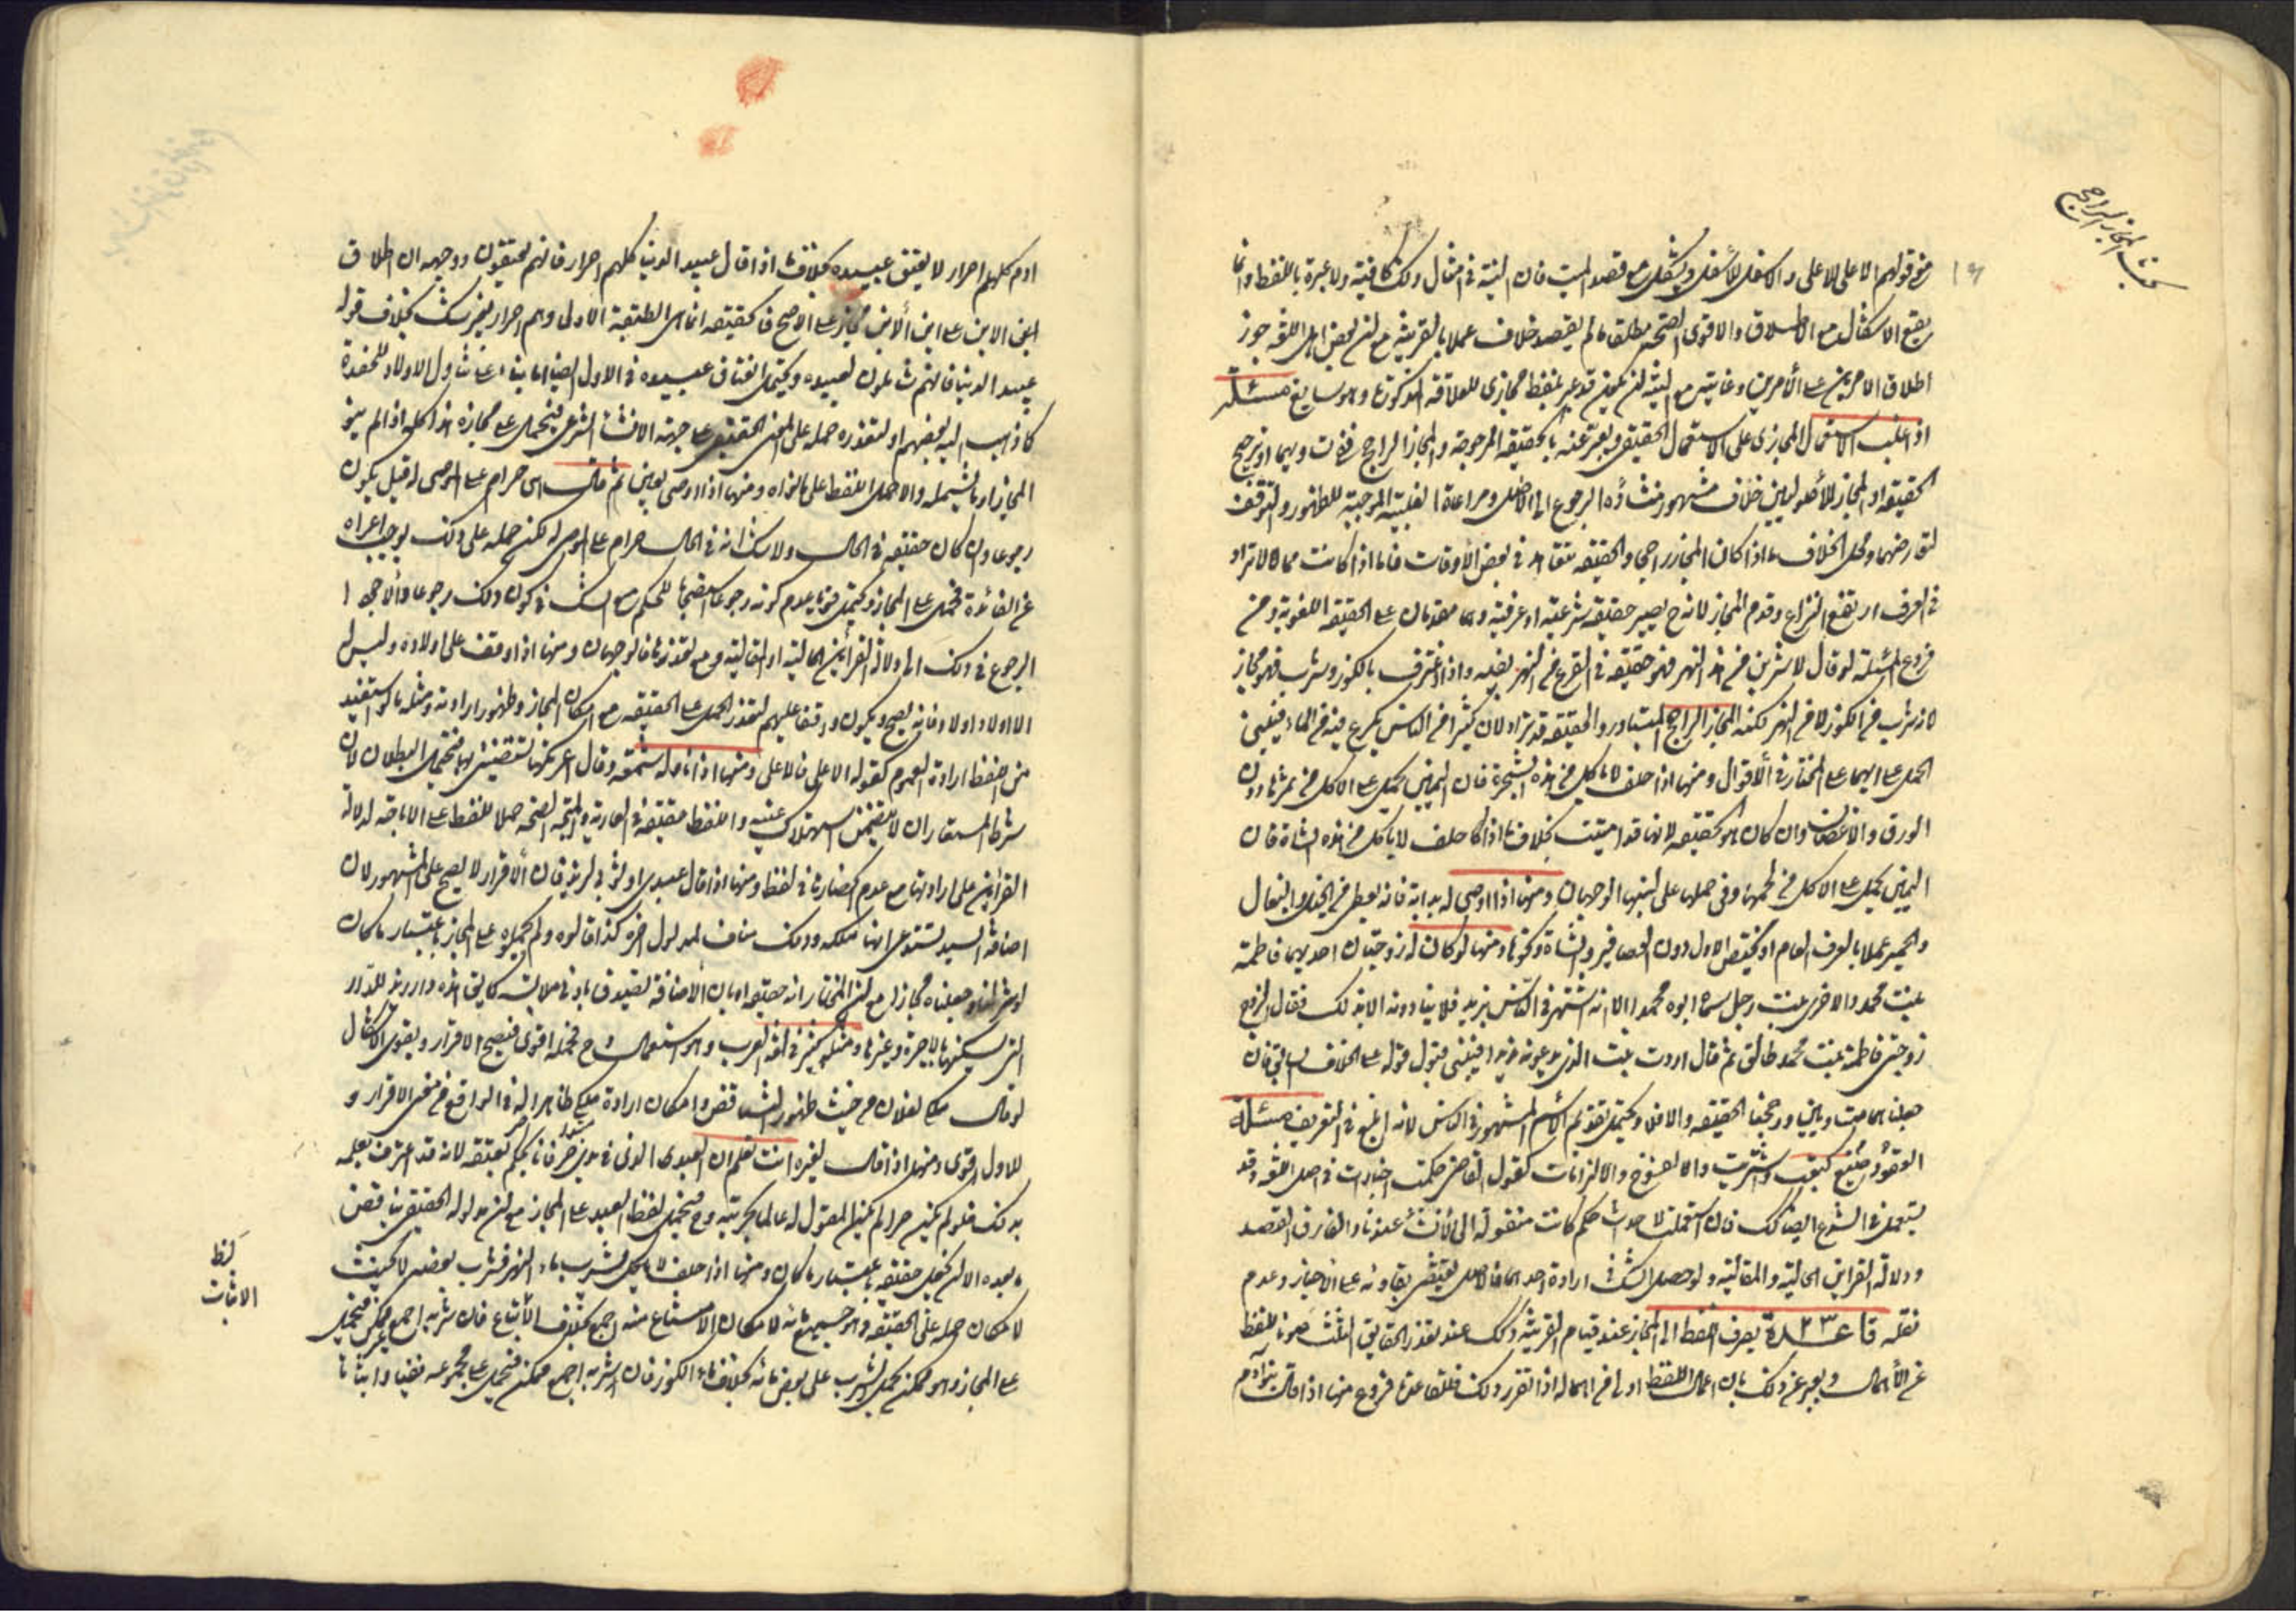 بحث المجاز الراجح
من قولهم الاعلى للاعلى والاسفل للاسفل ويشكل مع قصد الميت فان النية في امثال ذلك كافية ولا عبرة باللفظ وانما
يقع الاشكال مع الاطلاق والاقوى الصحة مطلقا ما لم يقصد خلاف عملا بالقرينة مع ان بعض اهل اللغة جوز
اطلاق الامرين على الأمرين وغايته مع النية ان يكون قد عبر بلفظ مجازى للعلاقة المذكورة وهو سايغ مسئلة
اذا غلب الاستعمال المجازى على الاستعمال الحقيقى ويعبر عنه بالحقيقة المرجوحة والمجاز الراجح ففى تساويهما او ترجيح
الحقيقة او المجاز للأصوليين خلاف مشهور منشاؤه الرجوع الى الاصل ومراعاة الغلبة الموجبة للظهور والتوقف
لتعارضهما ومحل الخلاف ما اذا كان المجاز راجحا والحقيقة تتعاهد في بعض الأوقات فاما اذا كانت مما لا تراد
في العرف ارتفع النزاع وقدم المجاز لانه ح يصير حقيقة شرعية او عرفية وهما مقدمان على الحقيقة اللغوية ومن
فروع المسئلة لو قال لاشربن من هذا النهر فهو حقيقة في الكرع من النهر بفيه واذا اغترف بالكوز وشرب فهو مجاز
لانه شرب من الكوز لا من النهر لكنه المجاز الراجح المتبادر والحقيقة قد تراد لان كثيرا من الناس يكرع بفيه من الماء فينبغى
الحمل على ايهما على المختار في الأقوال ومنها اذا حلف لا ياكل من هذه الشجرة فان اليمين يحمل على الاكل من ثمرتها دون
الورق والاغصان وان كان هو الحقيقة لانها قد اميتت بخلاف ما اذا حلف لا ياكل من هذه الشاة فان
اليمين يحمل على الاكل من لحمها وفى حملها على لبنها الوجهان ومنها اذا اوصى له بدابة فانه يعطى من الخيل والبغال
والحمير عملا بالعرف العام او يختص الاول دون العصافير والشاة ونحوها ومنها لو كان له زوجتان احديهما فاطمة
بنت محمد والاخرى بنت رجل سماه ابوه محمدا الا انه اشتهر في الناس بزيد فلا ينادونه الا بذلك فقال الزوج
زوجتى فاطمة بنت محمد طالق ثم قال اردت بنت الذى يدعونه زيدا فينبنى قبول قوله على الخلاف السابق فان
جعلناهما متساويين او رجحنا الحقيقة والا فلا ويحتمل تقديم الأسم المشهور في الناس لانه ابلغ في التعريف مسئلة
العقود كبعت واشتريت والفسوخ والالزامات كقول القاضى حكمت اخبارات في اصل اللغة وقد
يستعمل في الشرع ايضا كك فان استعملت لاحداث حكم كانت منقولة الى الأنشاء عندنا والفارق القصد
ودلالة القراين الحالية والمقالية ولو حصل الشك في ارادة احدهما فالاصل يقتضى بقاؤه على الاخبار وعدم
نقله قاعدة ٢٣ يصرف اللفظ الى المجاز عند قيام القرينة وكك عند تعذر الحقايق الثلث صونا للفظ
عن الأهمال ويعبر عن ذلك بان اعمال اللفظ اولى من اهماله اذا تقرر ذلك فللقاعدة فروع منها اذا قال بنو آدم
ادم كلهم احرار لا يعتق عبيده بخلاف ما اذا قال عبيد الدنيا كلهم احرار فانهم يعتقون ووجهه ان اطلاق
ابن الابن على ابن ألابن مجاز على الاصح فالحقيقة انما هى الطبقة الاولى وهم احرار بغير شك بخلاف قوله
عبيد الدنيا فانهم شاملون لعبيده ويحتمل انعتاق عبيده في الاول ايضا اما بناء على تناول الاولاد للحفدة
كما ذهب اليه بعضهم او لتعذره حمله على المعنى الحقيقى على جهة الانشاء الشرعى فيحمل على مجازه هذا كله اذا لم ينو
المجاز او ما يشمله والا حمل اللفظ على ما نواه ومنها اذا اوصى بعين ثم قال هى حرام على الموصى له قيل يكون
رجوعا وان كان حقيقة في الحال ولا شك انه في الحال حرام على الموصى له لكن حمله على ذلك يوجب اعراءه
عن الفائدة فيحمل على المجاز ويحتمل قويا عدم كونه رجوعا استصحابا للحكم مع الشك في كون ذلك رجوعا والارجح ا
الرجوع في ذلك الى دلالة القرائن الحالية او المقالية ومع تعذرها فالوجهان ومنها اذا اوقف على اولاده وليس له
الا اولاد اولاد فانه يصح ويكون وقفا عليهم لتعذر الحمل على الحقيقة مع امكان المجاز وظهور ارادته ومثله ما لو استفيد
من اللفظ ارادة العموم كقوله الاعلى فالاعلى ومنها اذا ناوله شمعة وقال اعرتكها لتستضئ بها فيحتمل البطلان لان
شرط المستعار ان لا يتضمن استهلاك عينه واللفظ حقيقة في العارية والمتجه الصحة حملا للفظ على الاباحة لدلالة
القراين على ارادتها مع عدم انحصارها في لفظ ومنها اذا قال عبيدى او ثوبى لزيد فان الأقرار لا يصح على المشهور لان
اضافة السيد تستدعى انها ملكه وذلك مناف لمدلول اخره كذا قالوه ولم يحملوه على المجاز باعتبار ما كان
التى يسكنها بالاجرة وغيرها ومثله كثير في لغة العرب وهو استعمال شايع فحمله اقوى فيصح الاقرار ويقوى الاشكال
لو قال ملكى لفلان من حيث ظهور التناقض وامكان ارادة ملكى ظاهرا له في الواقع فهو معنى الاقرار و
للاول اقوى ومنها اذا قال لغيره انت تعلم ان العبد الذى في يدى حر فانا نحكم بعتقه لانه قد اعترف بعلمه
بذلك فلو لم يكن حرا لم يكن المقول له عالما بحريته وح فيحمل لفظ العبد على المجاز مع ان مدلوله الحقيقى يناقض
ما بعده الا ان نجعل حقيقة باعتبار ما كان ومنها اذا حلف لا يشرب ماء النهر فشرب بعضه لا يحنث
لامكان حمله على الحقيقة وهو جميع مائه لامكان الامتناع منه اجمع بخلاف الأثبات فان شربه اجمع غير ممكن فيحمل
على المجاز وهو ممكن فيحمل الشرب على بعض مائه بخلاف ماء الكوز فان شربه اجمع ممكن فيحمل على مجموعه نفيا واثباتا
الاثبات